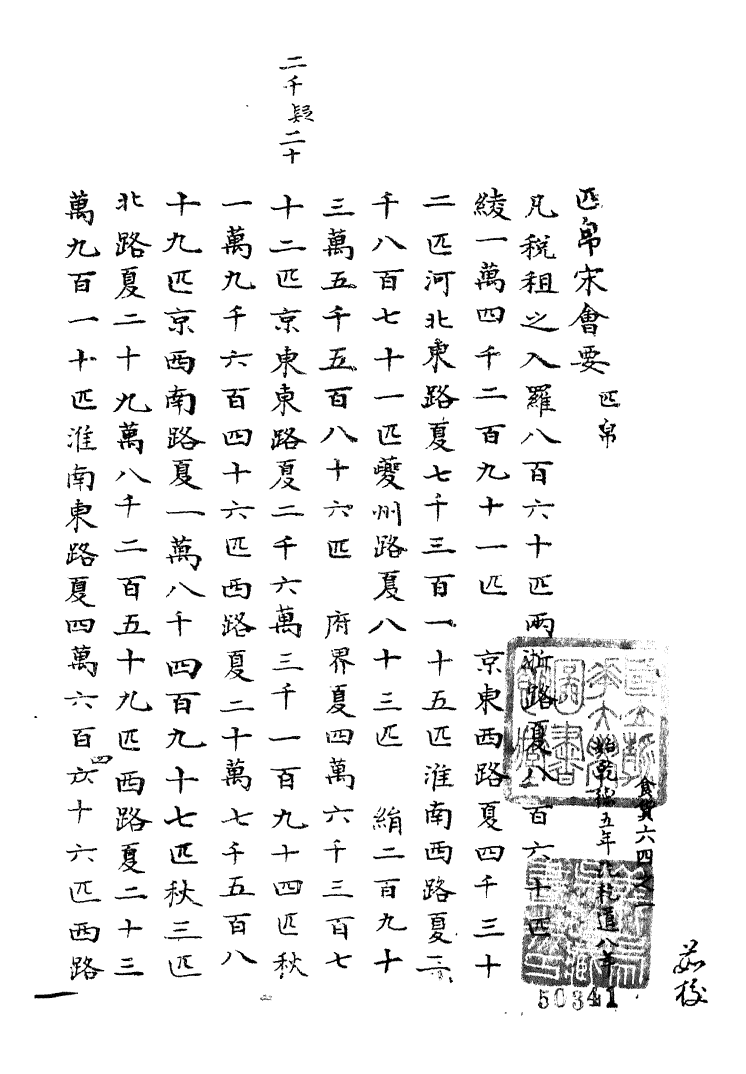 匹帛宋會要 匹帛
食貨六四之一
始乾德五年訖乾道八年
凡税租之入羅八百六十匹兩浙路夏八百六十匹
綾一萬四千二百九十一匹 京東西路夏四千三十
二匹河北東路夏七千三百一十五匹淮南西路夏二
千八百七十一匹夔州路夏八十三匹 絹二百九十
三萬五千五百八十六匹 府界夏四萬六千三百七
十二匹京東東路夏二千六萬三千一百九十四匹秋
二千疑二十
一萬九千六百四十六匹西路夏二十萬七千五百八
十九匹京西南路夏一萬八千四百九十七匹秋三匹
北路夏二十九萬八千二百五十九匹西路夏二十三
萬九百一十匹淮南東路夏四萬六百六十六匹西路
四
茹校
50341